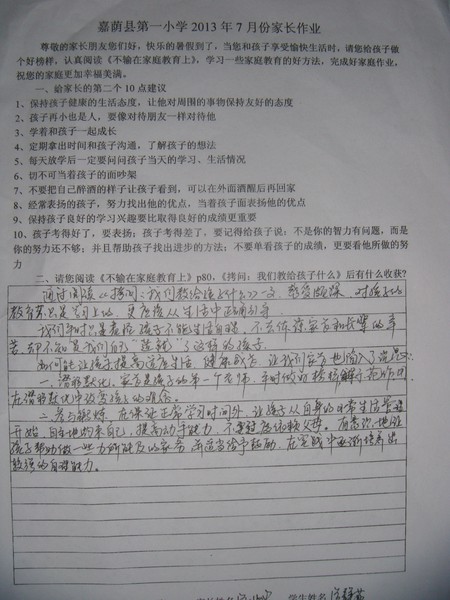 嘉荫县第一小学 2013 年 7 月份家长作业
尊敬的家长朋友您们好，快乐的暑假到了，当您和孩子享受愉快生活时，请您给孩子做
个好榜样，认真阅读《不输在家庭教育上》，学习一些家庭教育的好方法，完成好家庭作业，
祝您的家庭更加幸福美满。
一、给家长的第二个 10 点建议
1、保持孩子健康的生活态度，让他对周围的事物保持友好的态度
2、孩子再小也是人，要像对待朋友一样对待他
3、学着和孩子一起成长
4、定期拿出时间和孩子沟通，了解孩子的想法
5、每天放学后一定要问问孩子当天的学习、生活情况
6、切不可当着孩子的面吵架
7、不要把自己醉酒的样子让孩子看到，可以在外面酒醒后再回家
8、经常表扬的孩子，努力找出他的优点，当着孩子面表扬他的优点
9、保持孩子良好的学习兴趣要比取得良好的成绩更重要
10、孩子考得好了，要表扬；孩子考得差了，要记得给孩子说：不是你的智力有问题，而是
你的努力还不够；并且帮助孩子找出进步的方法；不要单看孩子的成绩，更要看他所做的努
力
二、请您阅读《不输在家庭教育上》p80，《拷问：我们教给孩子什么》后有什么收获?
通过阅读《拷问：我们教给孩子什么》一文，感受颇深，对孩子的
教育不只是学习上的，更应该从生活中正确引导
我们平时只是责怪孩子不能生活自理，不会体谅家长和长辈的辛
苦，却不知是我们自己"造就"了这样的孩子。
一、潜移默化，家长是孩子的第一个老师，平时做好榜样
在潜移默化中改变孩子的观念。
二、参与锻炼，在保证正常学习时间外，让孩子从自身的日常生活
开始，自主地约束自己，提高动手能力，不要过高依赖父母。有意识地让
孩子帮助做一些力所能及的家务，并适当给予鼓励，在实践中逐渐培养出
较强的自理能力。
学生姓名